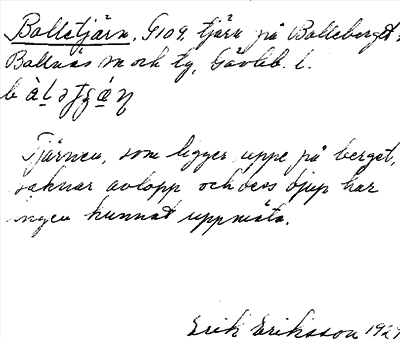 Bolletjärn, G109. tjärn på Bolleberget,
Bollnäs sn och tg, Gävleb. l.
Tjärnen, som ligger uppe på berget,
saknar avlopp och dess djup har
ingen kunnat uppmäta.
Erik Eriksson 192